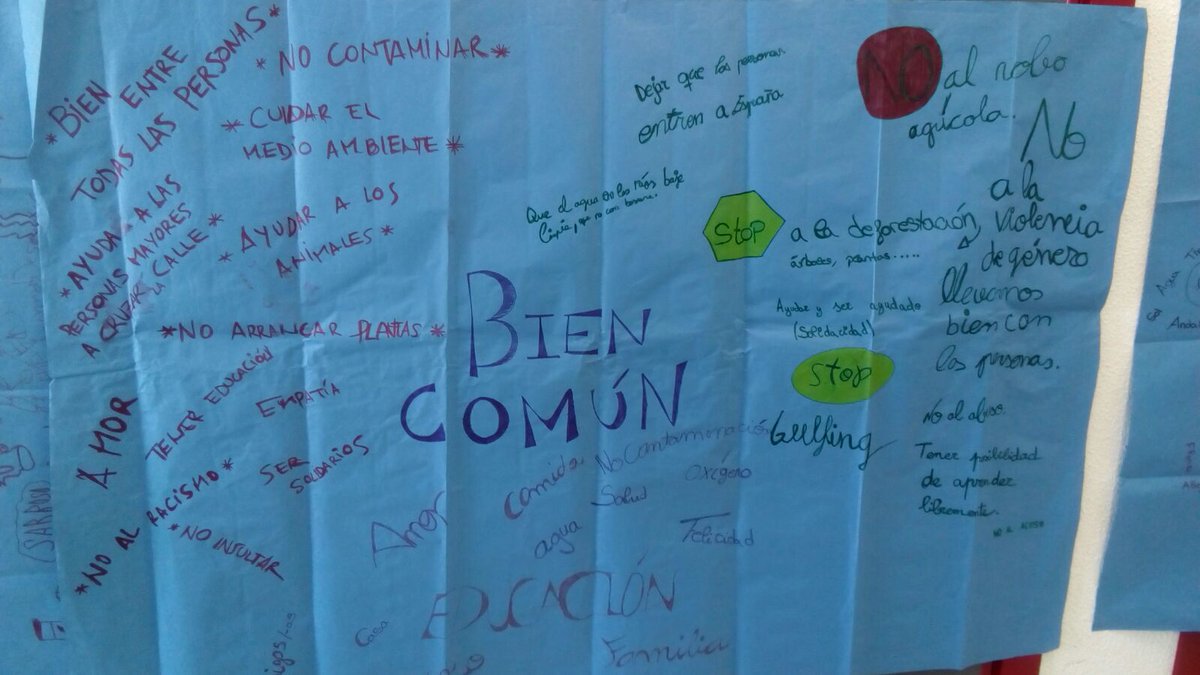 *BIEN ENTRE
TODAS LAS PERSONAS*
*NO CONTAMINAR*
*CUIDAR EL
MEDIO AMBIENTE*
*AYUDA A LAS
PERSONAS MAYORES
A CRUZAR LA CALLE*
*AYUDAR A LOS
ANIMALES*
*NO ARRANCAR PLANTAS*
TENER EDUCACIÓN
EMPATÍA
AMOR
SER
SOLIDARIOS
*NO AL RACISMO*
*NO INSULTAR
BIEN
COMÚN
Dejar que las personas
entren a España
Que el agua de los ríos baje
limpia, que no con
NO al robo
agrícola.
STOP a la deforestación,
árboles, plantas.....
No
a la
violencia
de género
Ayudar y ser ayudado
(Solidacidad)
llevarnos
bien con
las personas.
STOP
bullfing
No al abuso.
Tener posibilidad
de aprender
libremente.
NO AL ACOSO
comida
No Contaminación
Salud
Oxígeno
Amor
agua
Felicidad
EDUCACIÓN
Casa
Familia